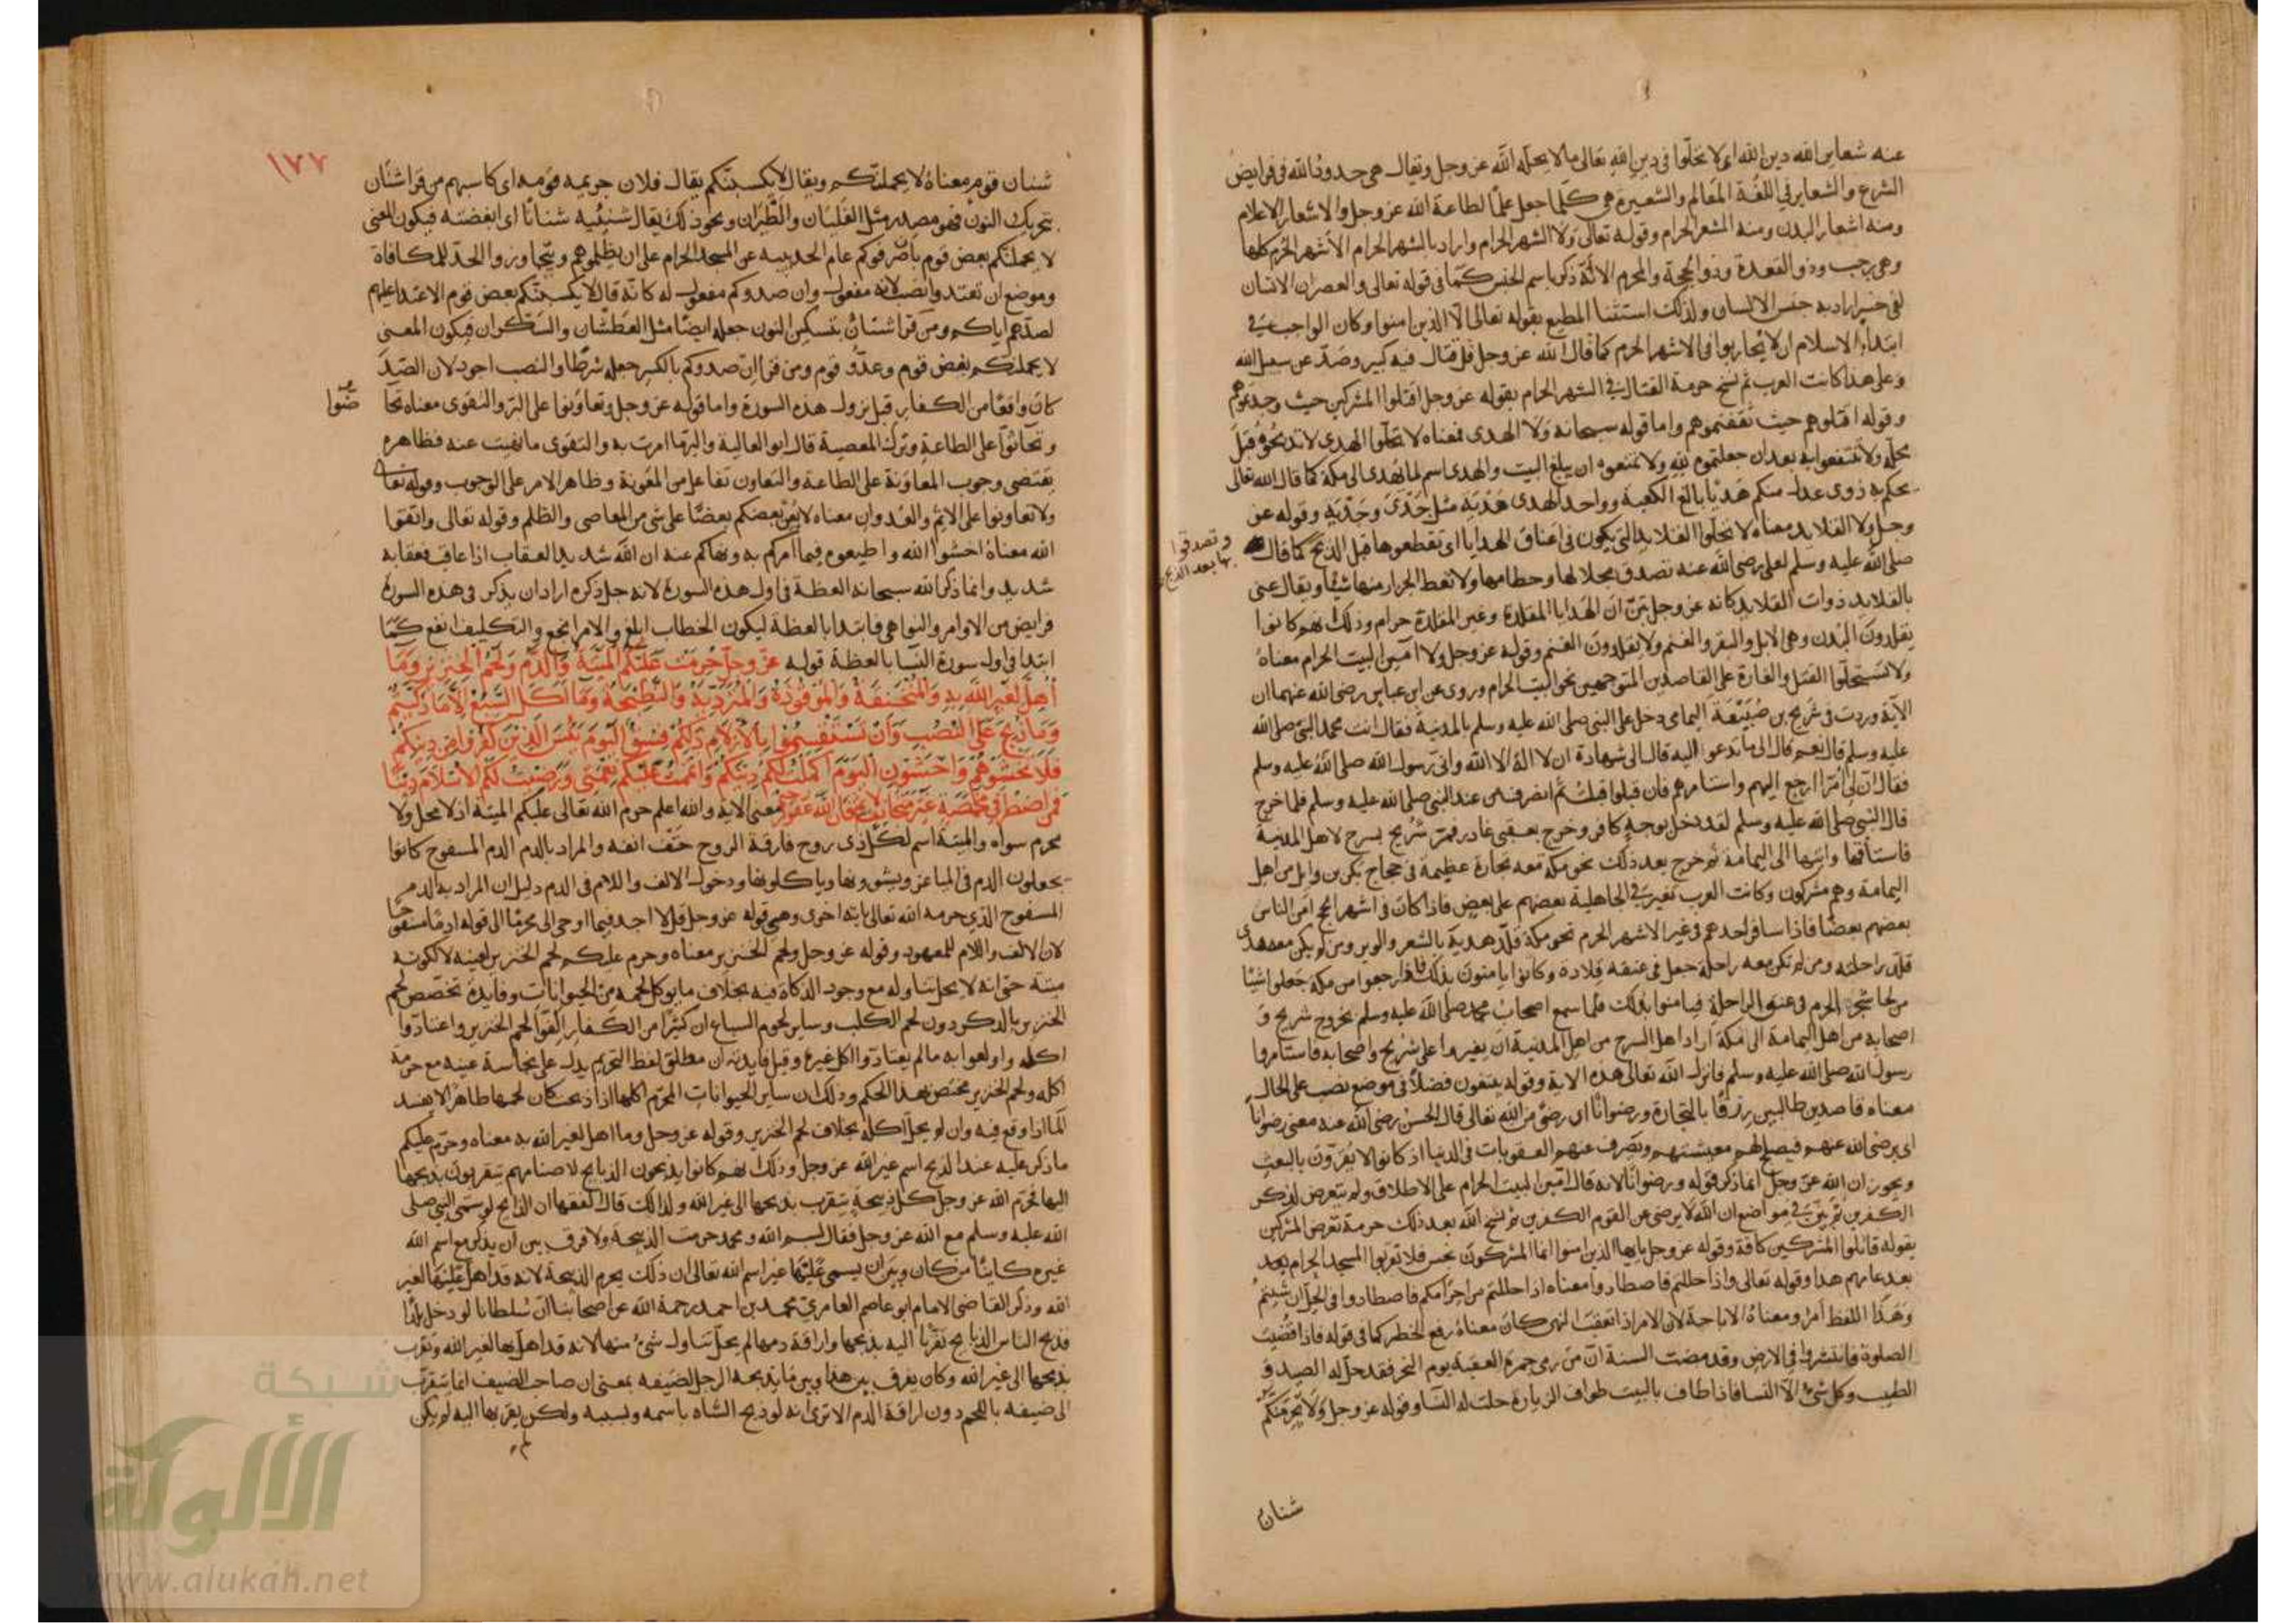 عنه شعاير الله دين الله اى لا تحلّوا فى دين الله تعالى ما لا يحله الله عز وجل ويقال هى حدود الله فى فرايض
الشرع والشعاير فى اللغة المعالم والشعيرة هى كلّما جعل علمًا لطاعة الله عز وجل والاشعار الاعلام
ومنه اشعار البدن ومنه المشعر الحرام وقوله تعالى ولا الشهر الحرام واراد بالشهر الحرام الأشهر الحرم كلها
وهى رجب وذو القعدة وذو الحجة والمحرم الا انه ذكر باسم الجنس كما فى قوله تعالى والعصر ان الانسان
لفى خسر اراد به جنس الانسان ولذلك استثنا المطيع بقوله تعالى الا الذين امنوا وكان الواجب فى
ابتداء الاسلام ان لا يحاربوا فى الاشهر الحرم كما قال الله عز وجل قل قتال فيه كبير وصدّ عن سبيل الله
وعلى هذا كانت العرب ثم نسخ حرمة القتال فى الشهر الحرام بقوله عز وجل اقتلوا المشركين حيث وجدتموهم
وقوله اقتلوهم حيث ثقفتموهم واما قوله سبحانه ولا الهدى فمعناه لا تحلّوا الهدى لا تذبحوه قبل
محله ولا تنتفعوا به بعد ان جعلتموه لله ولا تمنعوه ان يبلغ البيت والهدى اسم لما يُهدى الى مكة كما قال الله تعالى
يحكم به ذوى عدل منكم هَدْيًا بالغ الكعبة وواحد الهدى هَدْيَة مثل جَدْىَ وجَدْيَةِ وقوله عز
وجل ولا القلايد معناه لا تحلّوا القلايد التى يكون فى اعناق الهدايا اى تقطعوها قبل الذبح كما قال
وتصدقوا
بها بعد الذبح
صلى الله عليه وسلم لعلى رضى الله عنه تصدق بجلالها وخطامها ولا تعط الجزار منها شيئًا ويقال عنى
بالقلايد ذوات القلايد كانه عز وجل بيّن ان الهدايا المقلدة وغير المقلدة حرام وذلك انهم كانوا
يقلدون البُدن وهى الابل والبقر والغنم ولا يقلدون الغنم وقوله عز وجل ولا آمّين البيت الحرام معناهُ
ولا تستحلّوا القتل والغارة على القاصدين المتوجهين نحو البيت الحرام وروى عن ابن عباس رضى الله عنهما ان
الآية وردت فى شريح بن ضُبَيْعَة اليمامى دخل على النبى صلى الله عليه وسلم بالمدينة فقال انت محمد النبى صلى الله
عليه وسلم قال نعم قال الى ما تدعو اليه قال الى شهادة ان لا اله الا الله وانّى رسول الله صلى الله عليه وسلم
فقال ان لى امرًا ارجع اليهم واستامرهم فان قبلوا قبلت ثم انصرف من عند النبى صلى الله عليه وسلم فلما خرج
قال النبى صلى الله عليه وسلم لقد دخل بوجهٍ كافر وخرج بعقبى غادر فمرّ شريح بسرح لاهل المدينة
فاستاقها وانتهى الى اليمامة ثم خرج بعد ذلك نحو مكة معه تجارة عظيمة فى حجاج بكر بن وايل من اهل
اليمامة وهم مشركون وكانت العرب تغير فى الجاهلية بعضهم على بعض فاذا كان فى اشهر الحج امن الناس
بعضهم بعضًا فاذا سافر احدهم فى غير الاشهر الحرم نحو مكة قلّد هديهَ بالشعر والوبر ومن لم يكن معه هدى
قلّد راحلته ومن لم تكن معه راحلة جعل فى عنقه قِلادة وكانوا يامنون بذلك فاذا رجعوا من مكة جعلوا شيئًا
من لحا شجر الحرم فى عنق الراحلة فيامنوا بذلك فلما سمع اصحاب محمد صلى الله عليه وسلم بخروج شريح و
اصحابه من اهل اليمامة الى مكة اراد اهل السرح من اهل المدينة ان يغيروا على شريح واصحابه فاستامروا
رسول الله صلى الله عليه وسلم فانزل الله تعالى هذه الاية وقوله يبتغون فضلًا فى موضع نصب على الحال
معناه قاصدين طالبين رزقًا بالتجارة ورضوانًا اى رضًى من الله تعالى قال الحسن رضى الله عنه معنى رضوانًا
اى يرضى الله عنهم فيصلح لهم معيشتهم ويصرف عنهم العقوبات فى الدنيا اذ كانوا لا يُقرّون بالبعث
ويجوز ان الله عز وجل انما ذكر قوله ورضوانًا لانه قال امّين البيت الحرام على الاطلاق ولم يتعرض لذكر
الكفرين ثم بيّن فى مواضع ان الله لا يرضى عن القوم الكفرين ثم نسخ الله بعد ذلك حرمة تعرض المشركين
بقوله قاتلوا المشركين كافة وقوله عز وجل يايها الذين امنوا انما المشركون نجس فلا تقربوا المسجد الحرام بعد
بعد عامهم هذا وقوله تعالى واذا حللتم فاصطادوا معناه اذا حللتم من احرامكم فاصطادوا فى الحل ان شيتم
وهذا اللفظ امر ومعناهُ الاباحة لان الامر اذا تعقب النهى كان معناهُ رفع الحظر كما فى قوله فاذا قضيت
الصلوة فانتشروا فى الارض وقد مضت السنة ان من رمى جمرة العقبة يوم النحر فقد حلّ له الصيد و
الطيب وكل شئ الا النسا فاذا طاف بالبيت طواف الزيارة حلت له النسا وقوله عز وجل ولا يجرمنكم
شنان
١٧٧
شنان قوم معناهُ لا يحملنكم ويقال لا يكسبنّكم يقال فلان جريمه قومه اى كاسبهم من قرا شنَان
بتحريك النون فهو مصدر مثل الغَلَيَان والطَّيَران ونحو ذلك يقال شنيئُيه شنانًا اى ابغضته فيكون المعنى
لا يحملنّكم بعض قوم بان صرفوكم عام الحديبيه عن المسجد الحرام على ان يظلموهم ويتجاوزوا الحدّ للمكافاة
وموضع ان تعتدوا نصب لانه مفعول وان صدوكم مفعول له كانه قال لا يكسبنّكم بعض قوم الاعتدا عليهم
لصدّهم اياكم ومن قرا شنانُ بتسكين النون جعله ايضًا مثل العَطشان والسَكران فيكون المعنى
لا يحملنكم بغض قوم وعدوُّ قوم ومن قرا ان صدوكم بالكسر جعله شرطًا والنصب اجود لان الصّدَ
كان واقعًا من الكفار قبل نزول هذه السورة واما قوله عز وجل وتعاونوا على البرّ والتقوى معناه تحا
ضّوا
وتحاثّوا على الطاعة وترك المعصية قال ابو العالية والبرّ ما امرت به والتقوى ما نهيت عنه فظاهره
يقتضى وجوب المعاونة على الطاعة والتعاون تفاعل من المعونة وظاهر الامر على الوجوب وقوله تعالى
ولا تعاونوا على الاثم والعُدوان معناه لا يُعن بعضكم بعضًا على شى من المعاصى والظلم وقوله تعالى واتقوا
الله معناهُ اخشوا الله واطيعوه فيما امركم به ونهاكم عنه ان الله شديد العقاب اذا عاقب فعقابه
شديد وانما ذكر الله سبحانه العظة فى اول هذه السورة لانه جل ذكره اراد ان يذكر فى هذه السورة
فرايض من الاوامر والنواهى فابتدا بالعظة ليكون الخطاب ابلغ والامر انجع والتكليف انفع كما
ابتدا فى اول سورة النسا بالعظة قوله عزّ وجلّ حُرمَت عَلَيْكُم الميْتَة وَالدّمُ وَلَحْمُ الخِنْزيرِ وَمَا
أُهِلَّ لِغَيرِ اللهِ بِهِ وَالمُنْخَنِقَةُ وَالمَوْقُوذَةُ وَالمُتَرَدِّيَةُ وَالنَّطِيْحَةُ وَمَا اَكَلَ السَّبُعُ اِلّا مَا ذَكَّيْتُمْ
وَمَا ذُبِحَ عَلَى النُّصُبِ وَأَنْ تَسْتَقْسِمُوْا بِالأزلَامِ ذَلِكُمْ فِسْقٌ اليَوْمَ يَئِسَ الَّذِيْنَ كَفَرُوا مِنْ دِيْنِكُمْ
فَلَا تَخْشَوْهُمْ وَاخْشَوْنِ اليَوْمَ اَكْمَلْتُ لَكُمْ دِيْنَكُمْ وَاَتْمَمْتُ عَلَيْكُمْ نِعْمَتِى وَرَضِيْتُ لَكُمُ الاِسْلَامَ دِيْنًا
فَمَنِ اضْطُرَّ فِى مَخْمَصَةٍ غَيْرَ مُتَجَانِفٍ لِاِثْمٍ فَاِنَّ اللهَ غَفُوْرٌ رحيم معنى الاية والله اعلم حرم الله تعالى عليكم الميتة اذ لا محل ولا
محرم سواه والميتة اسم لكل ذى روح فارقة الروح حتف انفه والمراد بالدم الدم المسفوح كانوا
يجعلون الدم فى المباعر ويشوونها وياكلونها ودخول الالف واللام فى الدم دليل ان المراد به الدم
المسفوح الذى حرمه الله تعالى باية اخرى وهى قوله عز وجل قل لا اجد فيما اوحى الى محرمًا الى قوله او دمًا مسفوحًا
لان الالف واللام للمعهود وقوله عز وجل ولحم الخنزير معناه وحرم عليكم لحم الخنزير لعينه لا لكونه
ميتة حتى انه لا يحل تناوله مع وجود الذكاة فيه بخلاف ما يوكل لحمه من الحيوانات وفايدة تخصّص لحم
الخنزير بالذكر دون لحم الكلب وساير لحوم السباع ان كثيرًا من الكفار الِفوا لحم الخنزير واعتادوا
اكله واولعوا به ما لم يعتادوا اكل غيره وقيل فايدته ان مطلق لفظ التحريم يدل على نجاسة عينه مع حرمة
اكله ولحم الخنزير مختص بهذا الحكم وذلك ان ساير الحيوانات المحرم اكلها اذا ذبحت كان لحمها طاهرًا لا يفسد
الما اذا وقع فيه وان لم يحل اكله بخلاف لحم الخنزير وقوله عز وجل وما اهل لغير الله به معناه وحرّم عليكم
ما ذكر عليه عند الذبح اسم غير الله عز وجل وذلك انهم كانوا يذبحون الذبايح لاصنامهم يتقربون بذبحها
اليها فحرّم الله عز وجل كل ذبيحة يتقرب بذبحها الى غير الله ولذلك قال الفقها ان الذابح لو سمّى النبى صلى
الله عليه وسلم مع الله عز وجل فقال بسم الله ومحمد حرمت الذبيحة ولا فرق بين ان يذكر مع اسم الله
غيره كاينًا من كان وبين ان يسمى عَلَيْهَا غير اسم الله تعالى ان ذلك يحرم الذبيحة لانه قد اهل عَلَيْهَا لغير
الله وذكر القاضى الامام ابو عاصم العامرى محمد بن احمد رحمه الله عن اصحابنا ان سُلطانًا لو دخل بلدًا
فذبح الناس الذبايح تقرّبًا اليه بذبحها واراقة دمها لم يحلّ تناول شئ منها لانه قد اهل بها لغير الله وتقرب
بذبحها الى غير الله وكان يفرق بين هذا وبين ما يذبحه الرجل لضيفه بمعنى ان صاحب الضيف انما يتقرّب
الى ضيفه باللحم دون اراقة الدم الا ترى انه لو ذبح الشاه باسمه وبسببه ولكن يقربها اليه لم يكن
شبكة
الألوكة
www.alukah.net